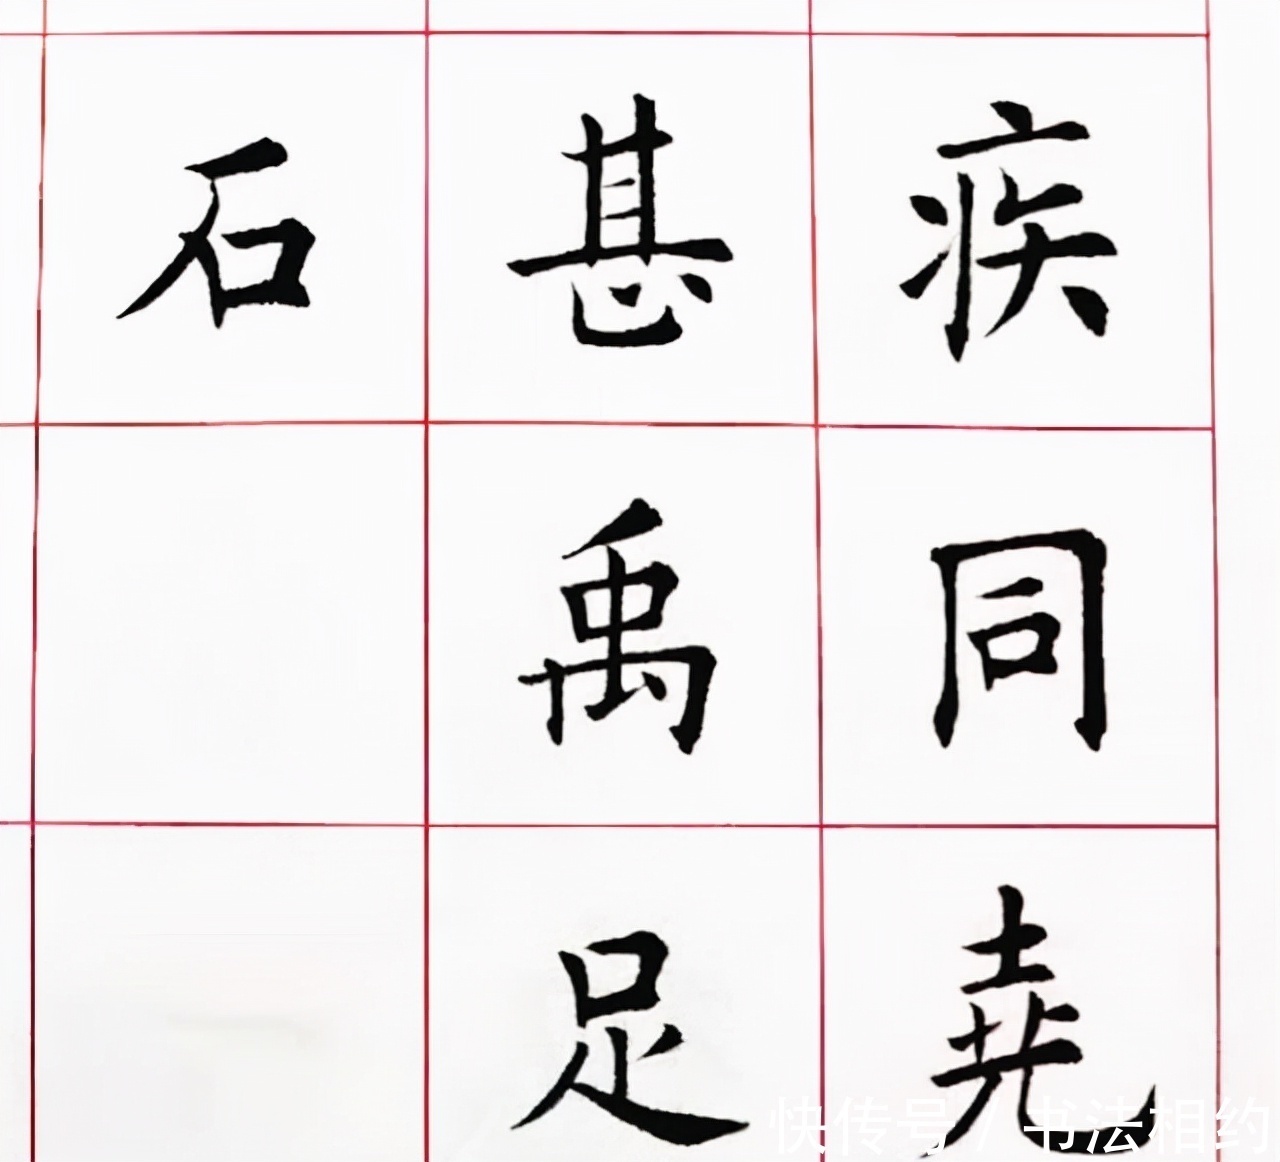 疾同堯
甚禹足
石
快传号 / 书法相约